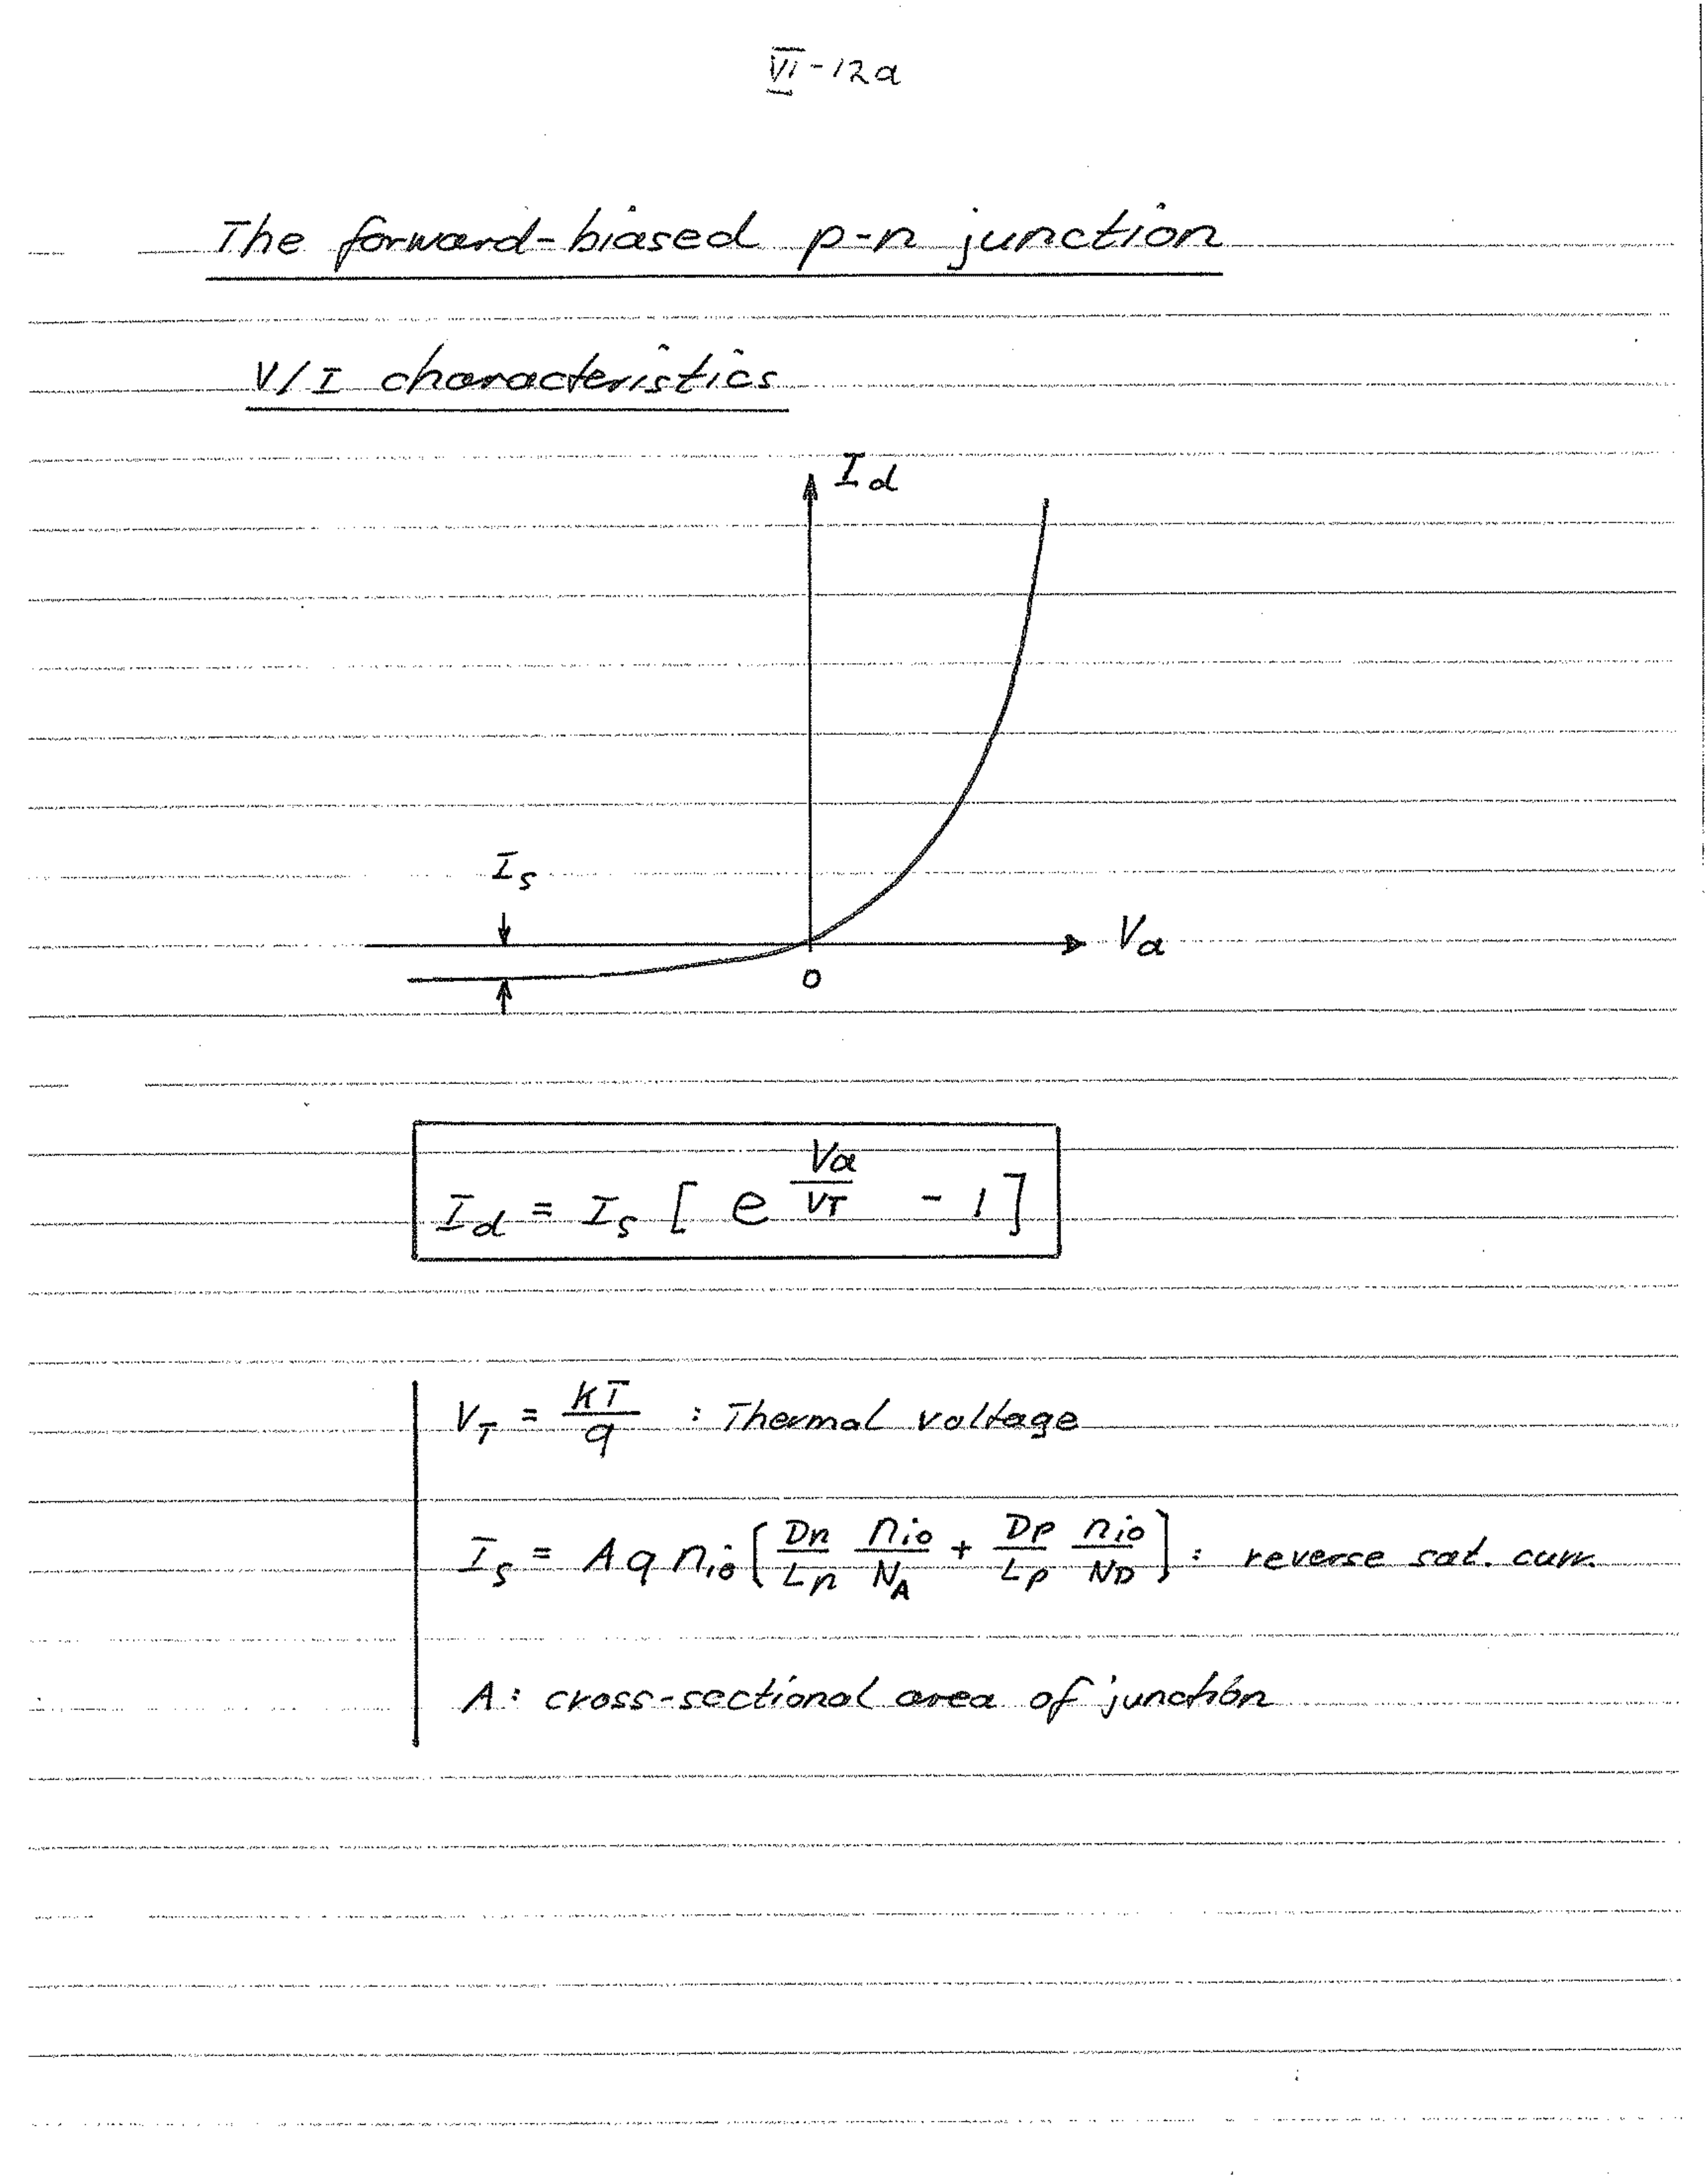 VI-12a
The forward-biased p-n junction
V/I characteristics
I_d
I_s
V_a
0
I_d = I_s [ e^{V_a/V_T} - 1 ]
V_T = kT/q : Thermal voltage
I_s = A q n_{io} [ D_n/L_n n_{io}/N_A + D_p/L_p n_{io}/N_D ] : reverse sat. curr.
A : cross-sectional area of junction